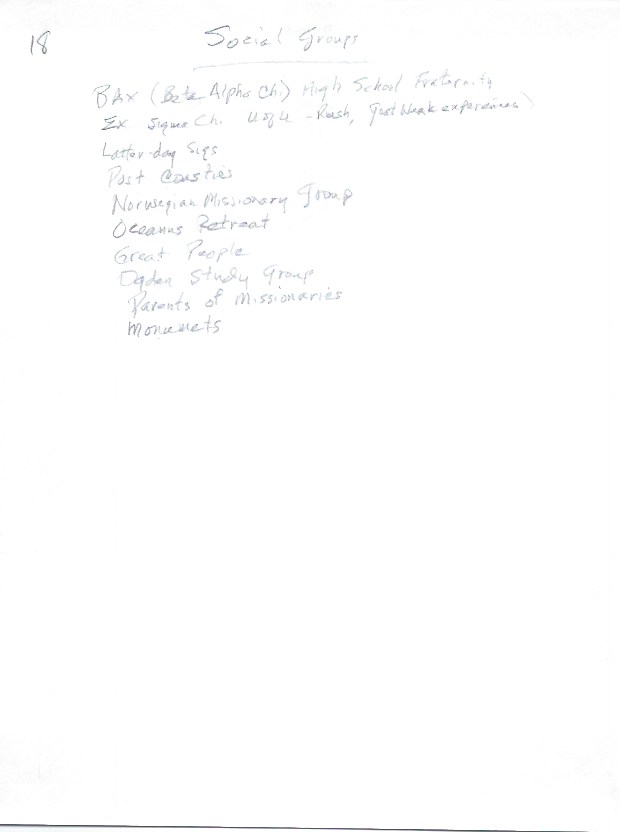 18
Social Groups
BAX (Beta Alpha Chi) High School Fraternity
Ex Sigma Chi U of U - Rush, Goat Week experiences)
Latter-day Sigs
Post Coasties
Norwegian Missionary Group
Oceanus Retreat
Great People
Ogden Study Group
Parents of Missionaries
Monumets